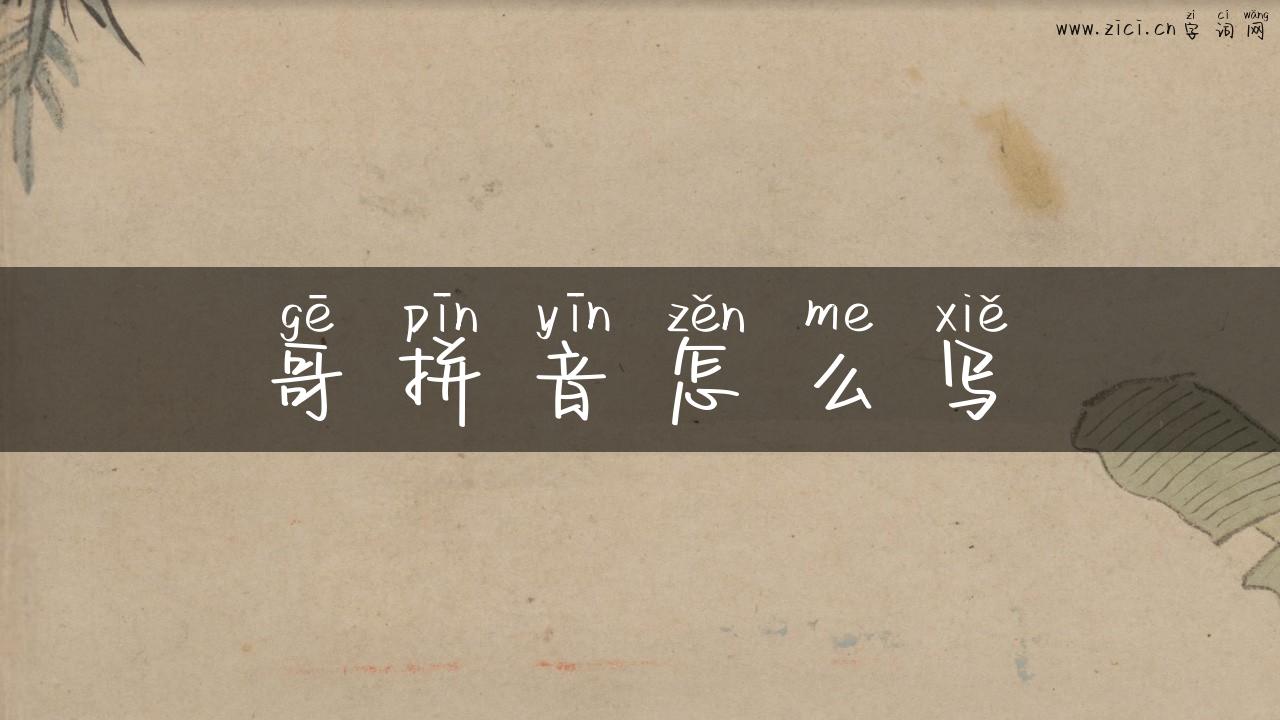 zì cí wǎng
www.zici.cn 字 词 网
gē pīn yīn zěn me xiě
哥 拼 音 怎 么 写